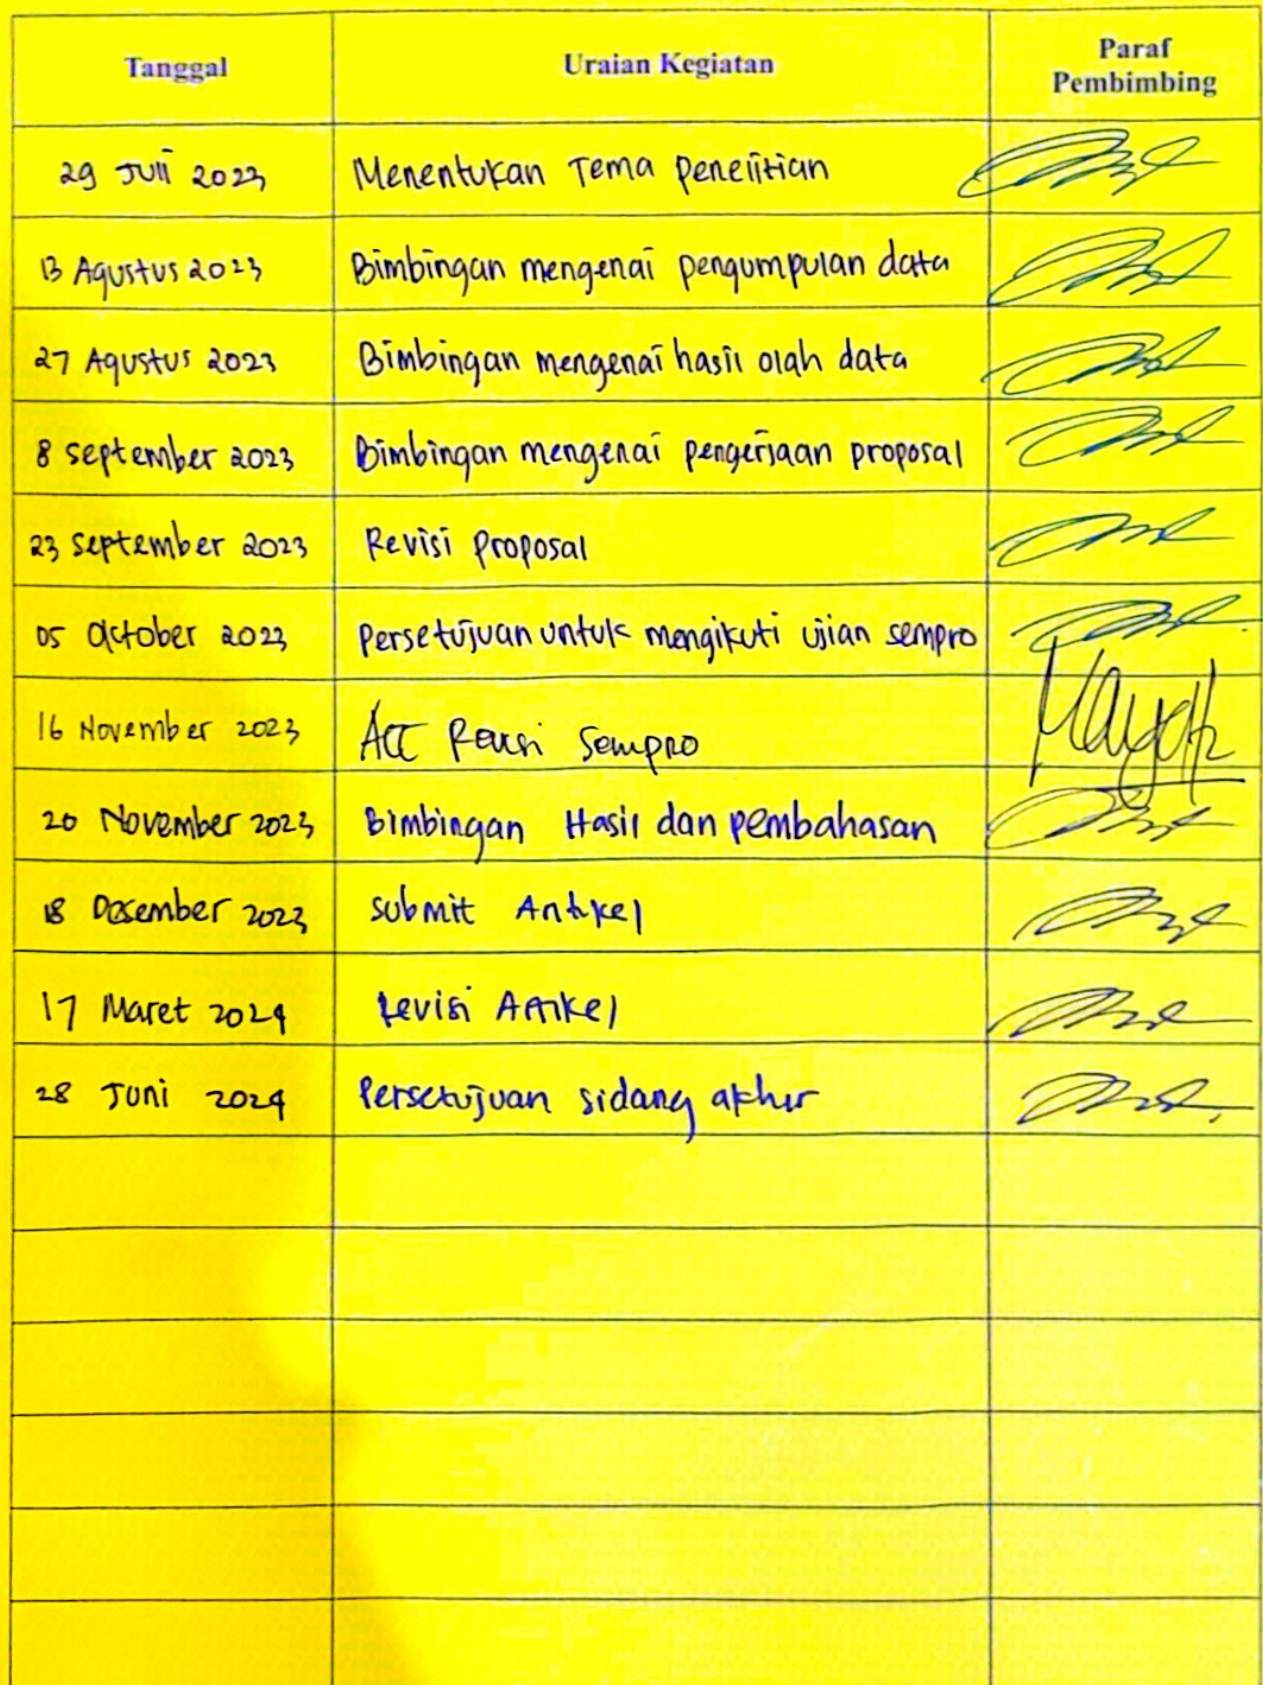 Tanggal Uraian Kegiatan Paraf
Pembimbing
29 Juli 2023 Menentukan Tema penelitian
13 Agustus 2023 Bimbingan mengenai pengumpulan data
27 Agustus 2023 Bimbingan mengenai hasil olah data
8 september 2023 Bimbingan mengenai pengerjaan proposal
23 september 2023 Revisi proposal
05 October 2023 persetujuan untuk mengikuti ujian sempro
16 November 2023 ACC Revisi Sempro
20 November 2023 Bimbingan Hasil dan pembahasan
18 Desember 2023 submit Artikel
17 Maret 2024 Revisi Artikel
28 Juni 2024 Persetujuan sidang akhir